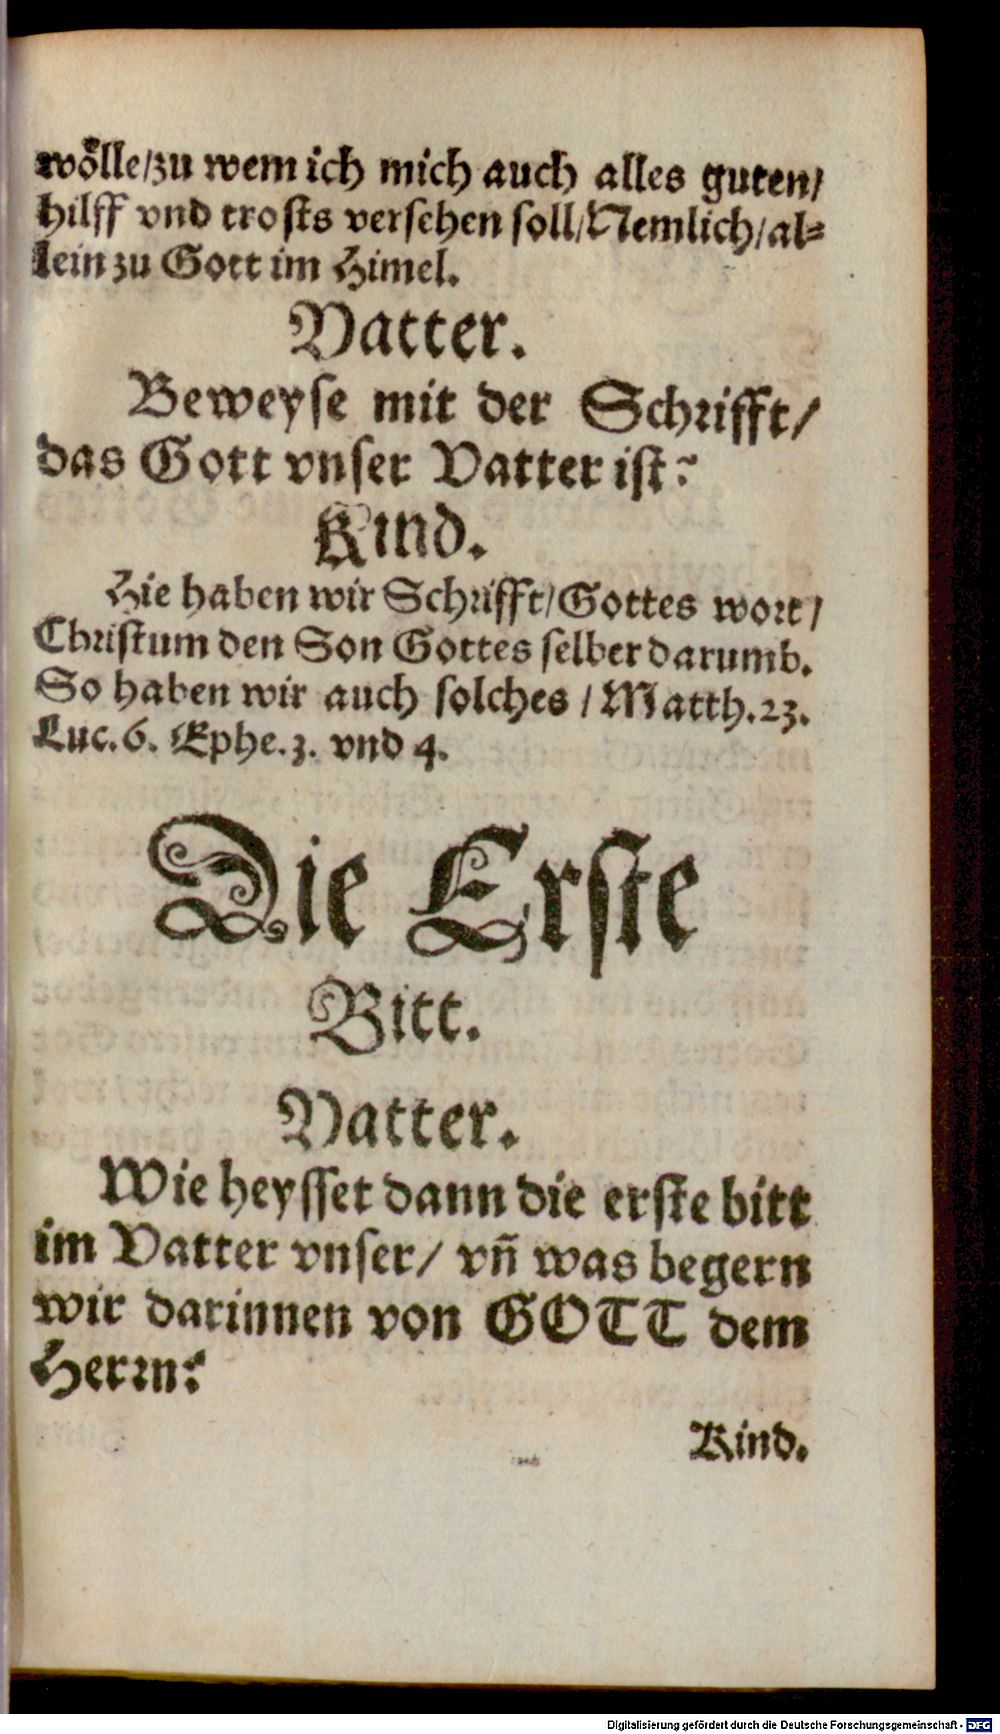 wölle/zu wem ich mich auch alles guten/
hilff vnd trosts versehen soll/Nemlich/al⸗
lein zu Gott im Himel.
Vatter.
Beweyse mit der Schrifft/
das Gott vnser Vatter ist?
Kind.
Hie haben wir Schrifft/Gottes wort/
Christum den Son Gottes selber darumb.
So haben wir auch solches / Matth.23.
Luc.6. Ephe.3. vnd 4.
Die Erste
Bitt.
Vatter.
Wie heysset dann die erste bitt
im Vatter vnser/ vñ was begern
wir darinnen von GOTT dem
Herrn?
Kind.
Digitalisierung gefördert durch die Deutsche Forschungsgemeinschaft - DFG